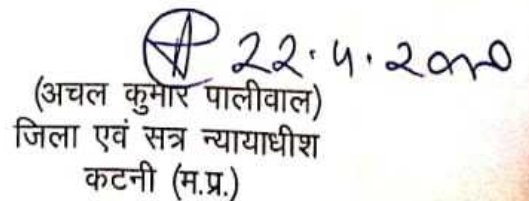 22.4.2020
(अचल कुमार पालीवाल)
जिला एवं सत्र न्यायाधीश
कटनी (म.प्र.)